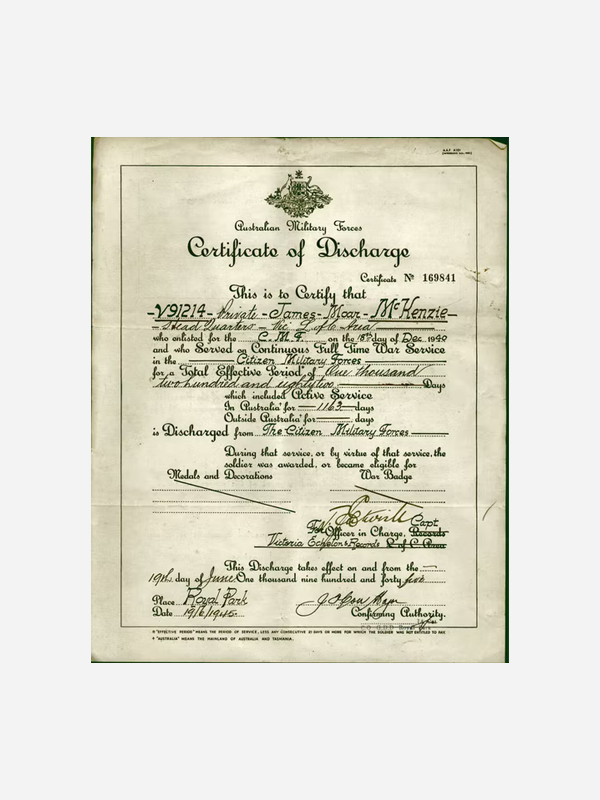 Australian Military Forces
Certificate of Discharge
Certificate No 169841
This is to Certify that
V91214 - Private - James - Moar - McKenzie -
- Head Quarters - Vic L of C Area
who enlisted for the C. M. F. on the 15th day of Dec 1940
and who Served on Continuous Full Time War Service
in the Citizen Military Forces
for a Total Effective Period* of One thousand
two hundred and eighty two Days
which included Active Service
In Australia† for 1163 days
Outside Australia† for days
is Discharged from The Citizen Military Forces
During that service, or by virtue of that service, the
soldier was awarded, or became eligible for
Medals and Decorations War Badge
Capt
For Officer in Charge, Records
Victoria Echelon & Records L of C Area
This Discharge takes effect on and from the
19th day of June One thousand nine hundred and forty five
Place Royal Park
Date 19/6/1945 Confirming Authority.
* "EFFECTIVE PERIOD" MEANS THE PERIOD OF SERVICE, LESS ANY CONSECUTIVE 21 DAYS OR MORE FOR WHICH THE SOLDIER WAS NOT ENTITLED TO PAY.
† "AUSTRALIA" MEANS THE MAINLAND OF AUSTRALIA AND TASMANIA.